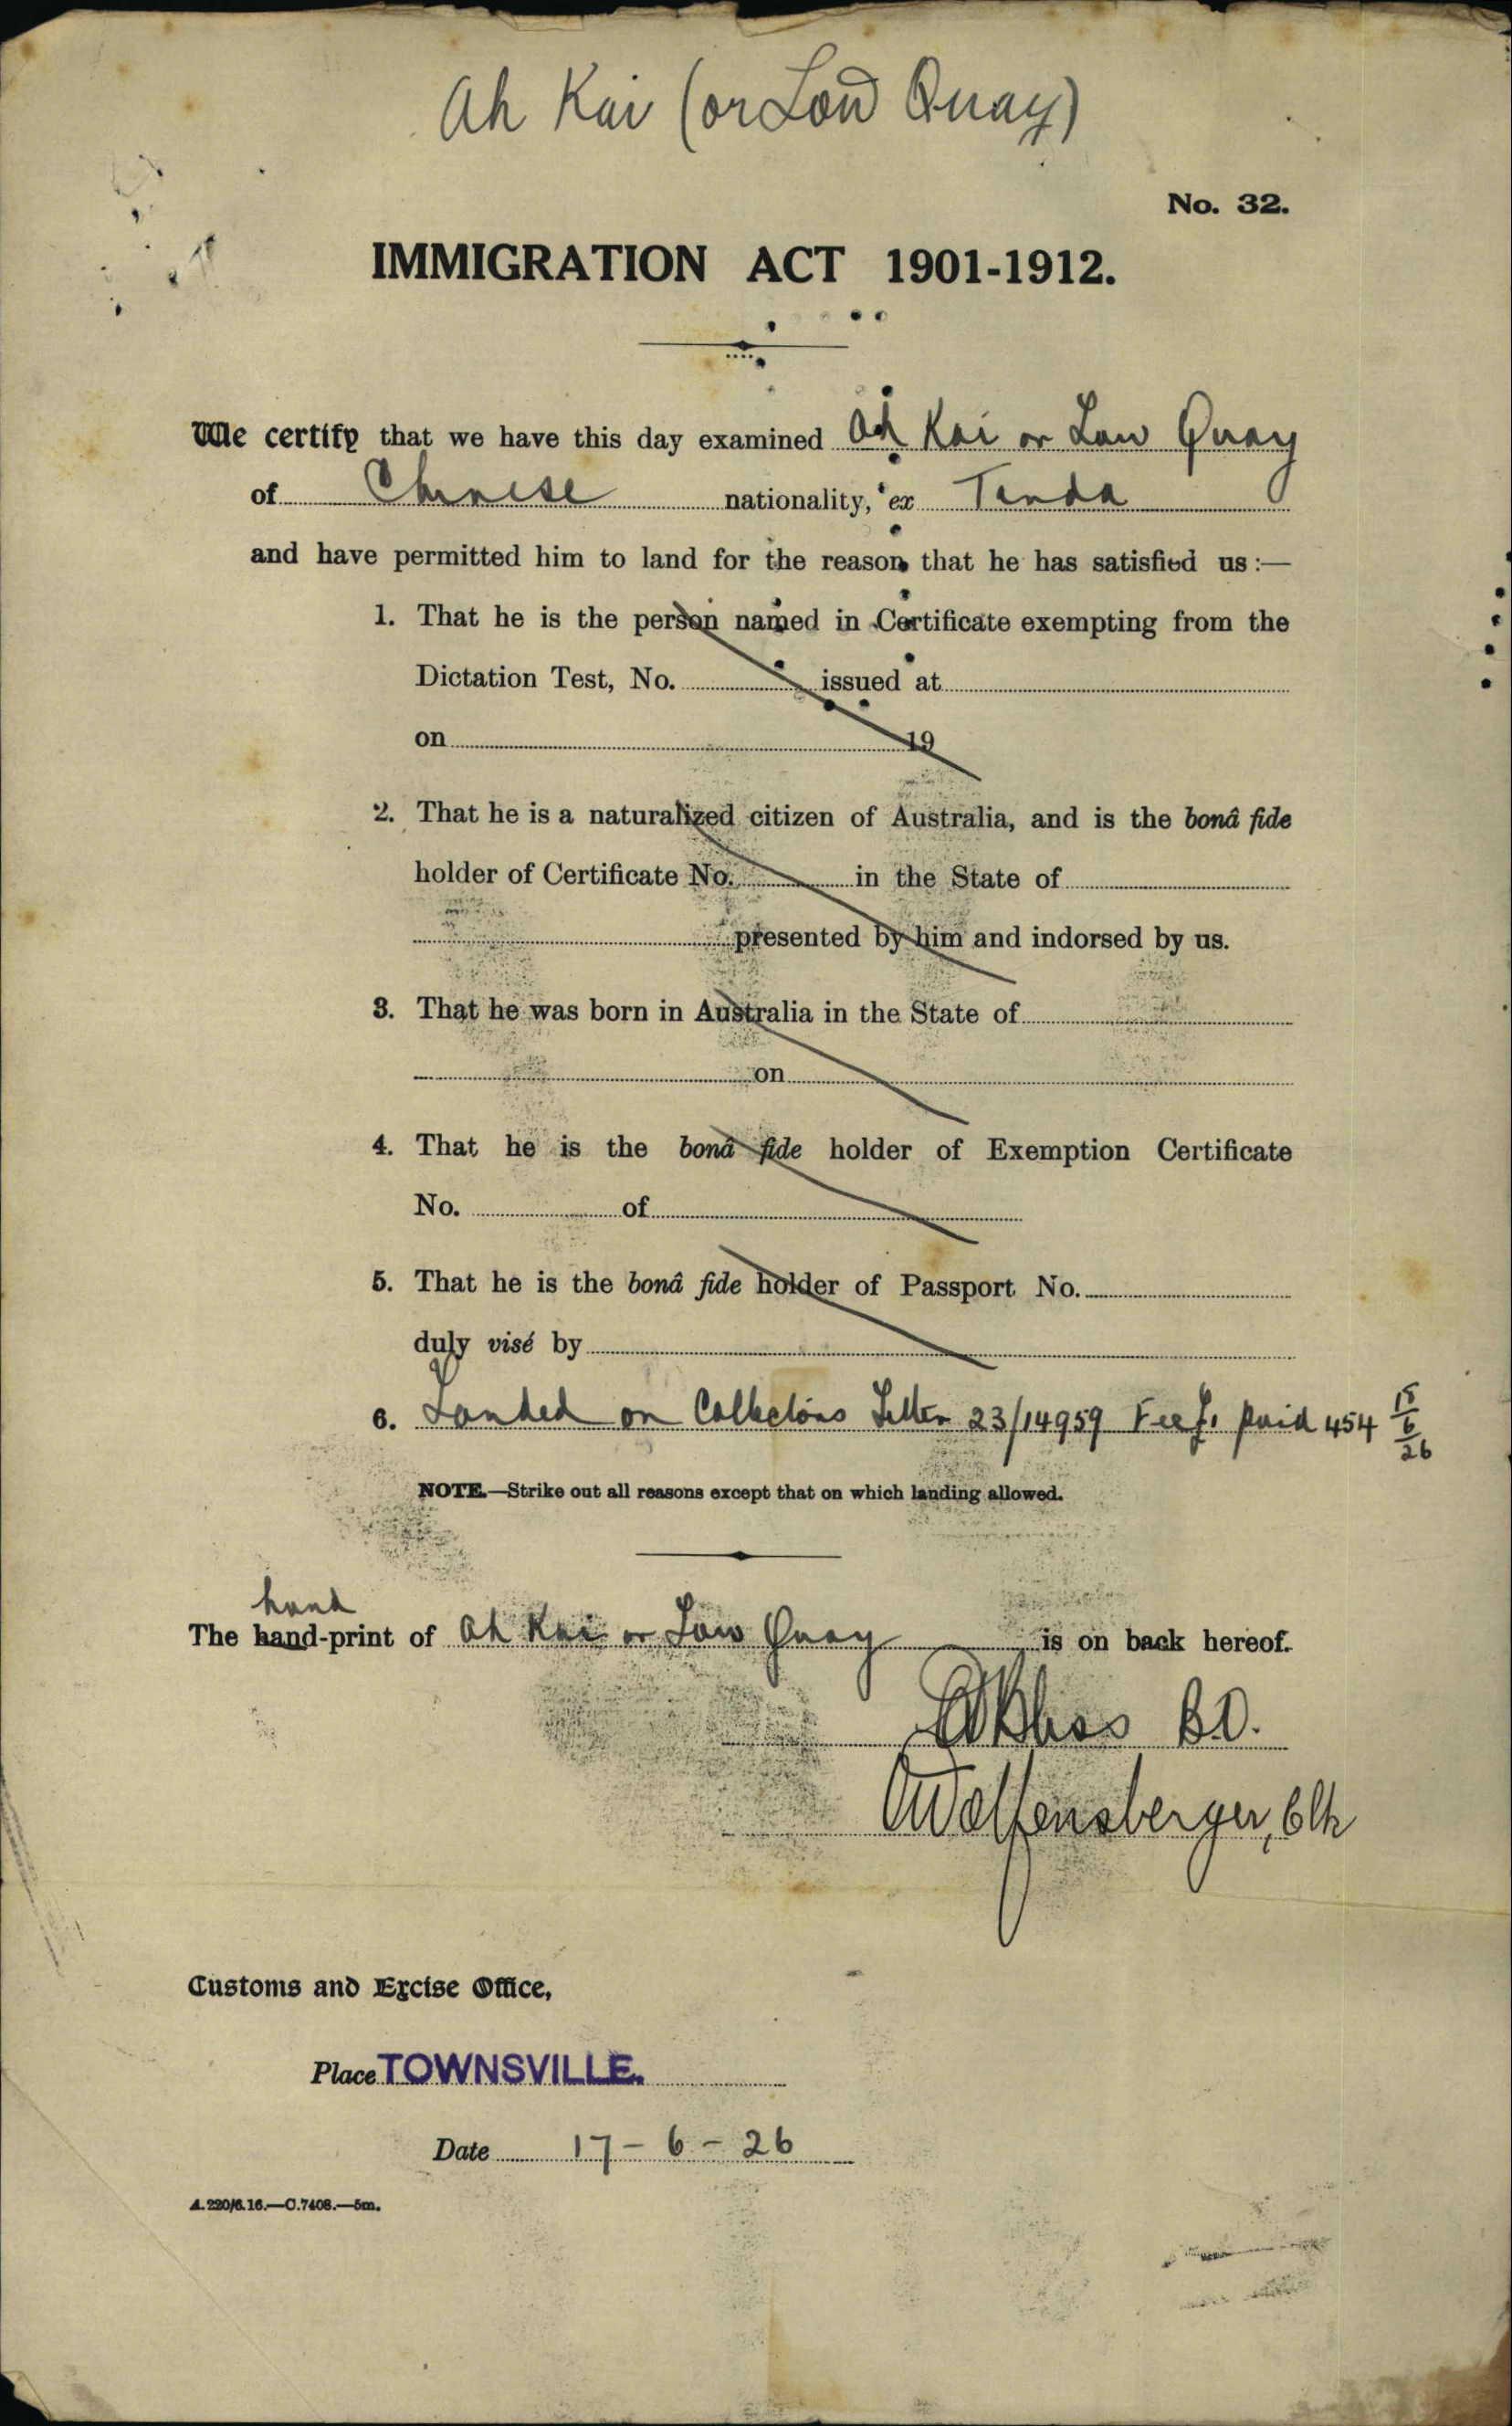 Ah Kai (or Low Quay)
No. 32.
IMMIGRATION ACT 1901-1912.
We certify that we have this day examined Ah Kai or Low Quay
of Chinese nationality, ex Tanda
and have permitted him to land for the reason that he has satisfied us:—
1. That he is the person named in Certificate exempting from the
Dictation Test, No. issued at
on 19
2. That he is a naturalized citizen of Australia, and is the bonâ fide
holder of Certificate No. in the State of
presented by him and indorsed by us.
3. That he was born in Australia in the State of
on
4. That he is the bonâ fide holder of Exemption Certificate
No. of
5. That he is the bonâ fide holder of Passport No.
duly visé by
6. Landed on Collectors Letter 23/14959 Fee £1 paid 454 15/6/26
NOTE.—Strike out all reasons except that on which landing allowed.
hand
The hand-print of Ah Kai or Low Quay is on back hereof.
Bliss B.O.
Wolfensberger, Clk
Customs and Excise Office,
Place TOWNSVILLE.
Date 17-6-26
A.220/6.16.—C.7408.—5m.